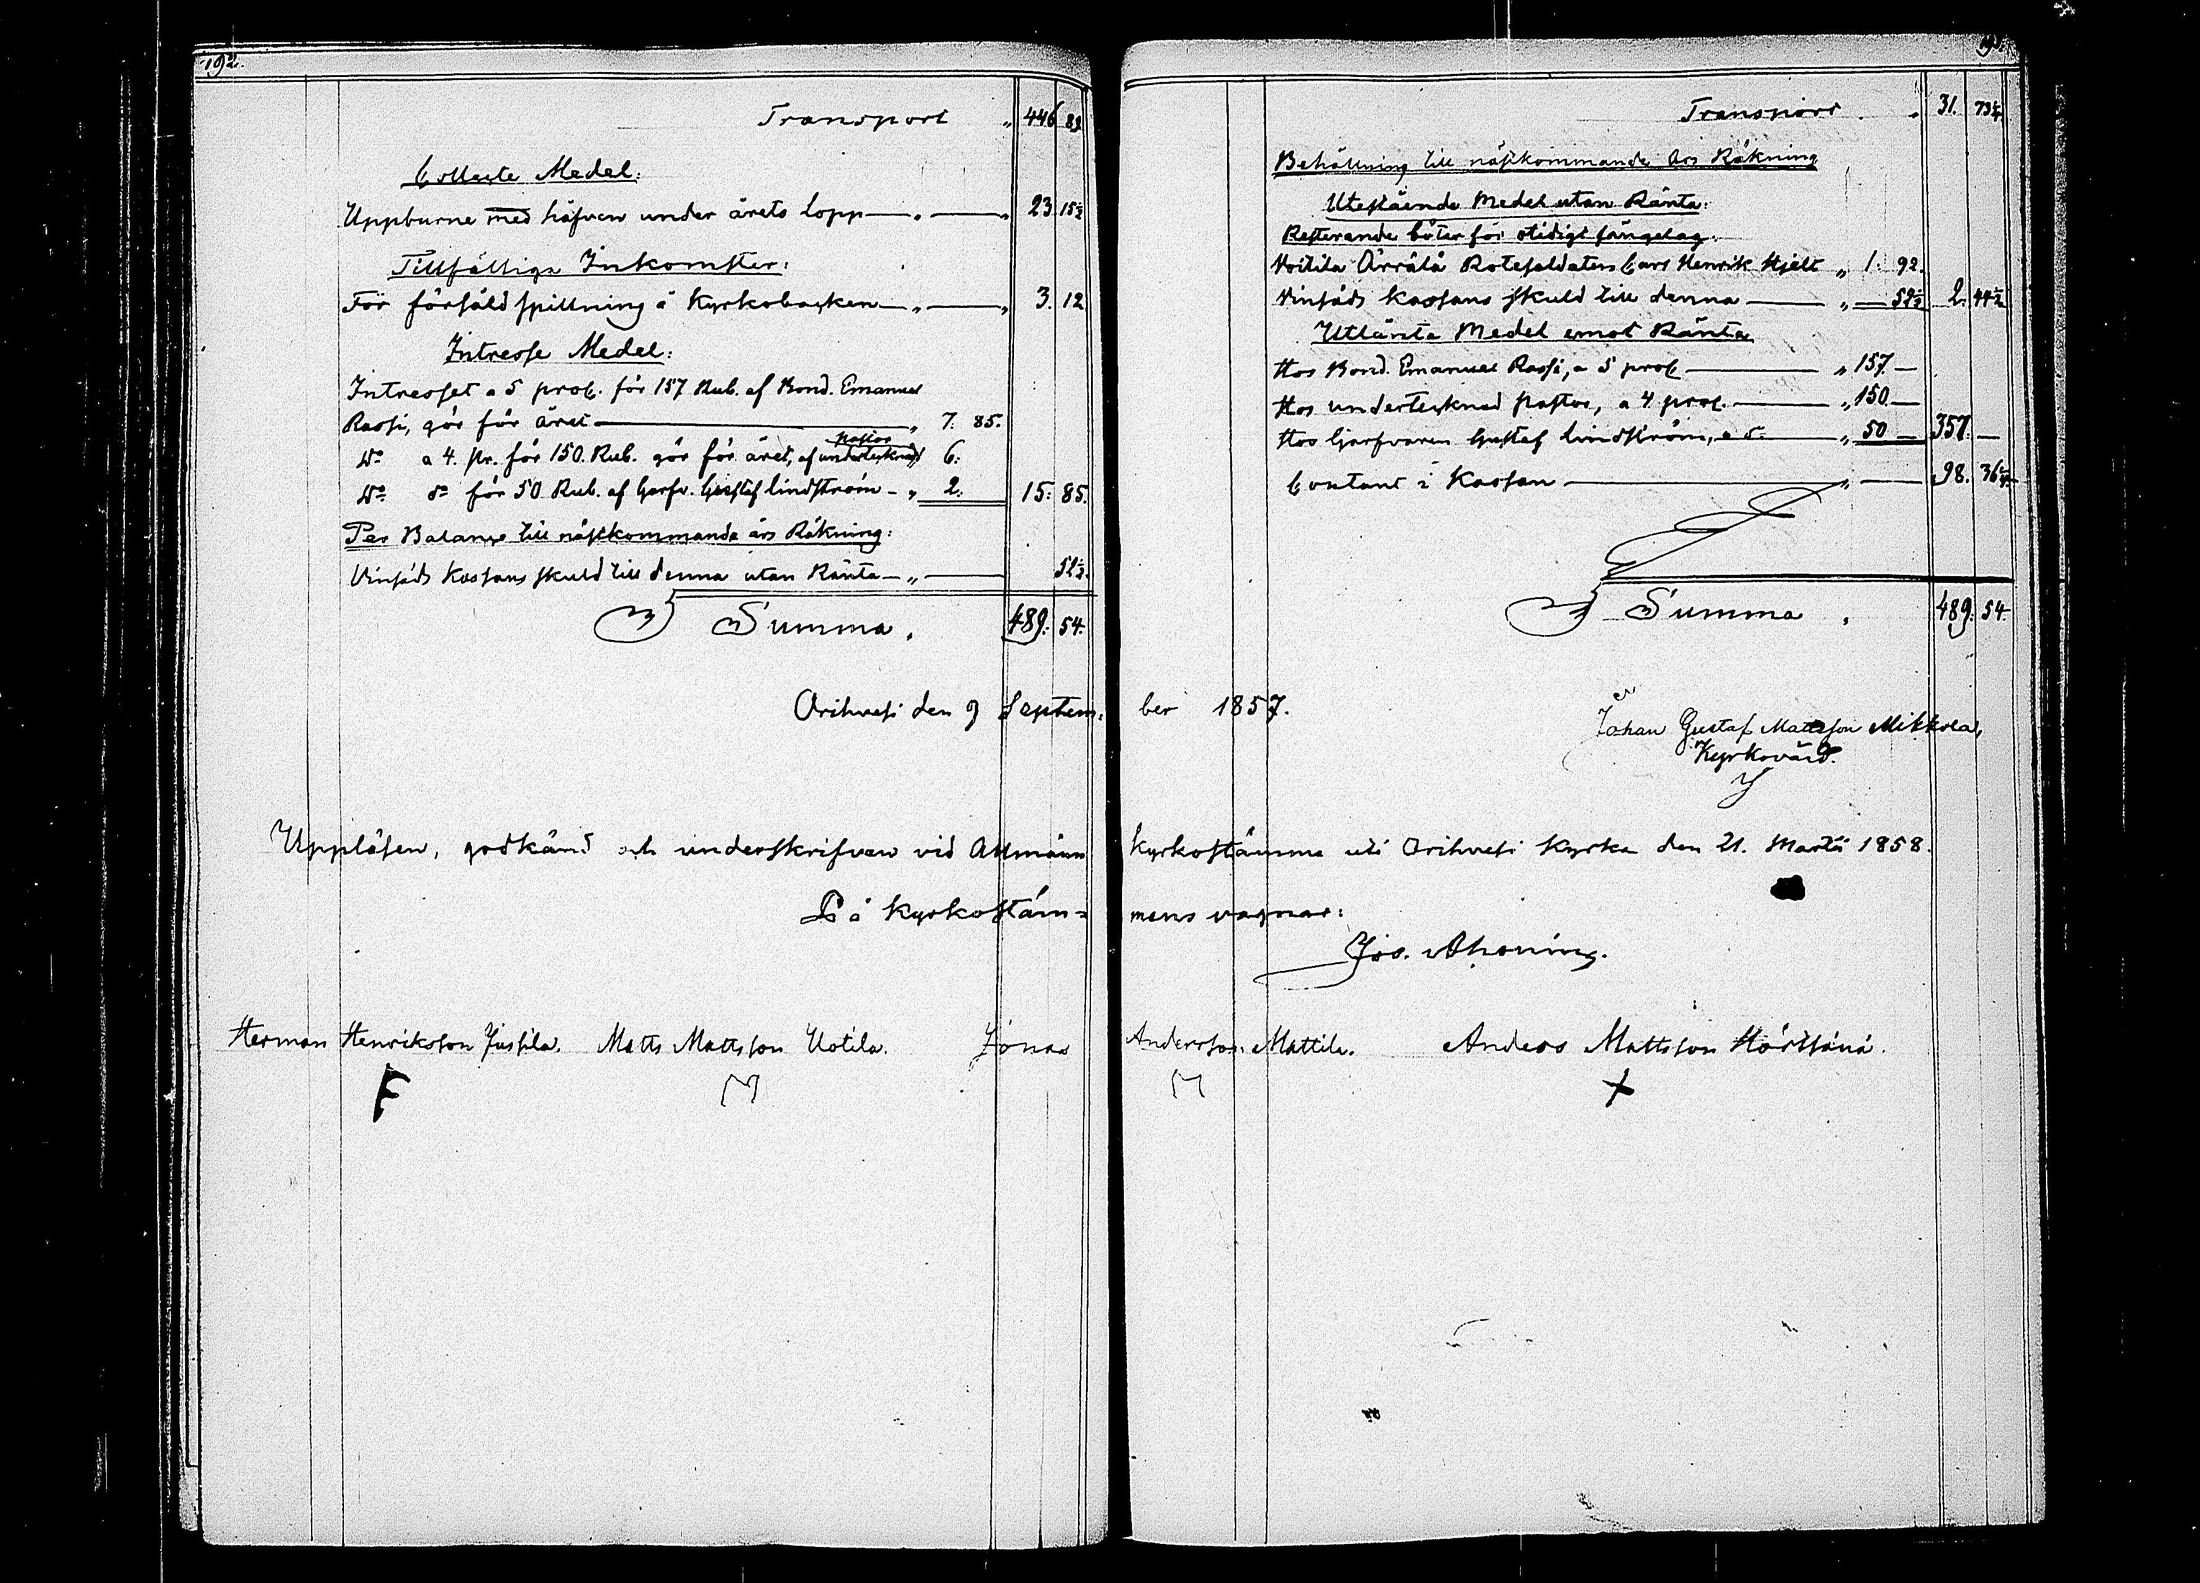 192.
Transport " 446 89
Collecte Medel:
Uppburne med håfven under årets Lopp — " — " 23 15½
Tillfällige Inkomster:
För försåld spillning å Kyrkobacken — " — " 3. 12
Intresse Medel:
Intresset a 5 proc. för 157 Rub. af Bond. Emanuel
Rassi, gör för året — " 7. 85.
Do a 4. pr. för 150. Rub. gör för året, af undertecknad Pastor 6.
Do do för 50 Rub. af Garfv. Gustaf Lindström - " 2. 15. 85.
Per Balance till nästkommande års Räkning:
Vinsäds Kassans skuld till denna utan Ränta — " — 52½.
Summa. 489. 54.
Transport . . 31. 73¼
Behållning till nästkommande års Räkning
Utestående Medel utan Ränta:
Resterande böter för otidigt sängelag.
Voitila Ärrälä Rotesoldaten Carl Henrik Hjelt " 1. 92.
Vinsäds Kassans skuld till denna — " — 52½ 2. 44½
Utlänte Medel emot Ränta
Hos Bond. Emanuel Rassi, a 5 proc — " 157. —
Hos undertecknad Pastor, a 4 proc. — " 150 —
Hos Garfvaren Gustaf Lindström, a do — " 50 — 357. —
Contant i Kassan — " — 98. 36¼
Summa . 489. 54.
Orihvesi den 9 September 1857.
Johan Gustaf Mattsson Mikkola,
Kyrkovärd.
Uppläsen, godkänd och underskrifven vid Allmänn Kyrkostämma uti Orihvesi Kyrka den 21. Martii 1858.
På Kyrkostäm= mans vägnar:
Jos. Ahoning.
Herman Henriksson Jussila. Matts Mattsson Uotila. Jonas Andersson Mattila. Anders Mattsson Hörtsänä.